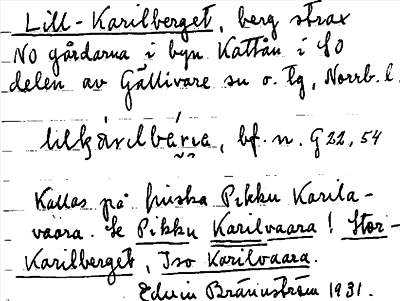 Lill-Karilberget, berg strax
NO gårdarna i byn Kattån i SO
delen av Gällivare sn o. tg, Norrb. l.
bf. n. G 22, 54
Kallas på finska Pikku Karila-
vaara. Se Pikku Karilvaara! Stor-
Karilberget, Iso Karilvaara.
Edvin Brännström 1931.